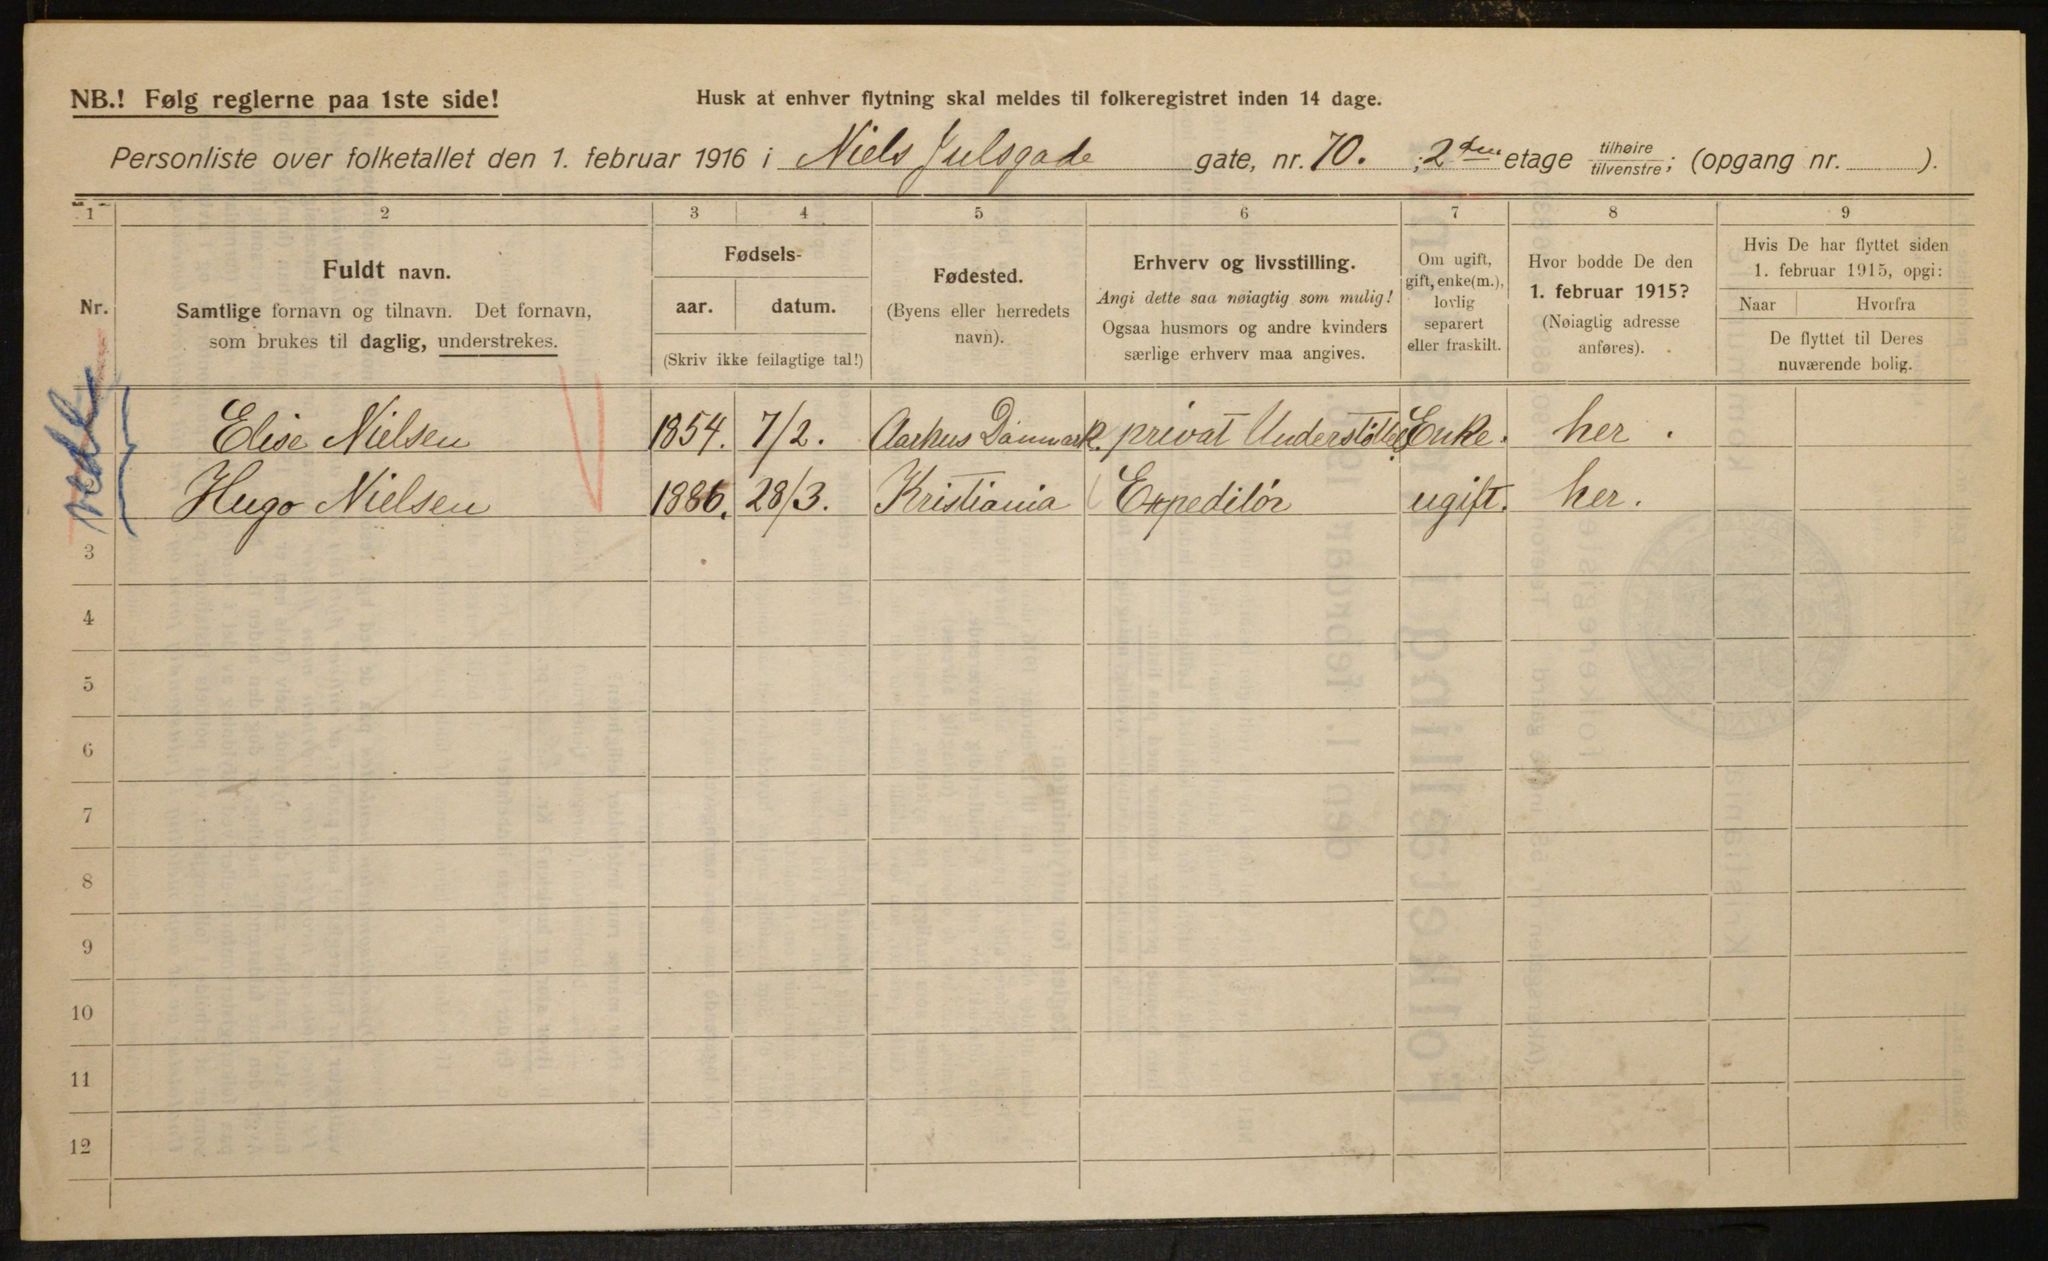 NB.! Følg reglerne paa 1ste side!
Husk at enhver flytning skal meldes til folkeregistret inden 14 dage.
Personliste over folketallet den 1. februar 1916 i Niels Julsgade gate, nr. 70. ; 2den etage tilhøire tilvenstre; (opgang nr. ).
1 2 3 4 5 6 7 8 9
Nr.
Fuldt navn.
Samtlige fornavn og tilnavn. Det fornavn,
som brukes til daglig, understrekes.
Fødsels-
aar. datum.
(Skriv ikke feilagtige tal!)
Fødested.
(Byens eller herredets
navn).
Erhverv og livsstilling.
Angi dette saa nøiagtig som mulig!
Ogsaa husmors og andre kvinders
særlige erhverv maa angives.
Om ugift,
gift, enke(m.),
lovlig
separert
eller fraskilt.
Hvor bodde De den
1. februar 1915?
(Nøiagtig adresse
anføres).
Hvis De har flyttet siden
1. februar 1915, opgi:
Naar Hvorfra
De flyttet til Deres
nuværende bolig.
Elise Nielsen 1854. 7/2. Aarhus Danmark. privat Understøttet Enke. her.
Hugo Nielsen 1886. 28/3. Kristiania Expeditør ugift. her.
3
4
5
6
7
8
9
10
11
12